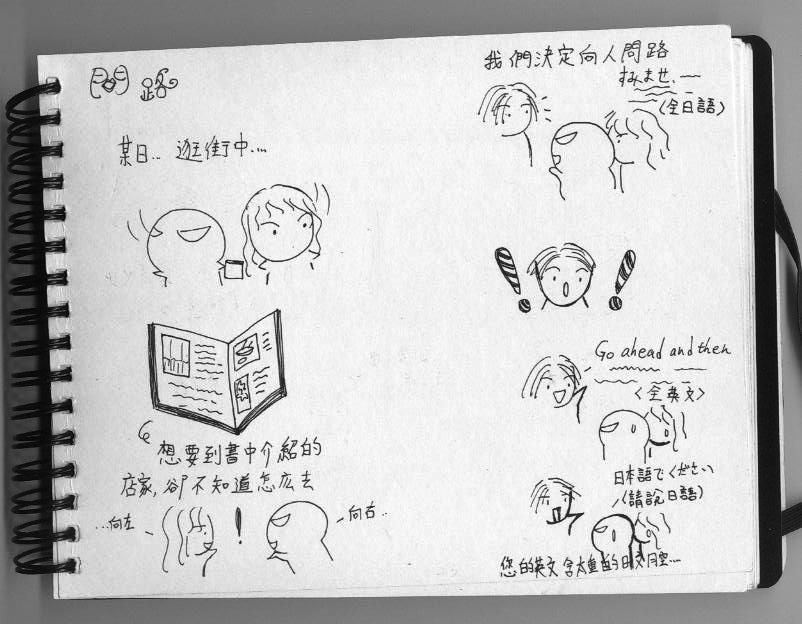 問路
某日... 逛街中....
想要到書中介紹的
店家,卻不知道怎広去
...向左
向右..
我們決定向人問路
すみませ、~
(全日語)
Go ahead and then
<全英文>
日本語でください
(請說日語)
您的英文含太重的日文腔...